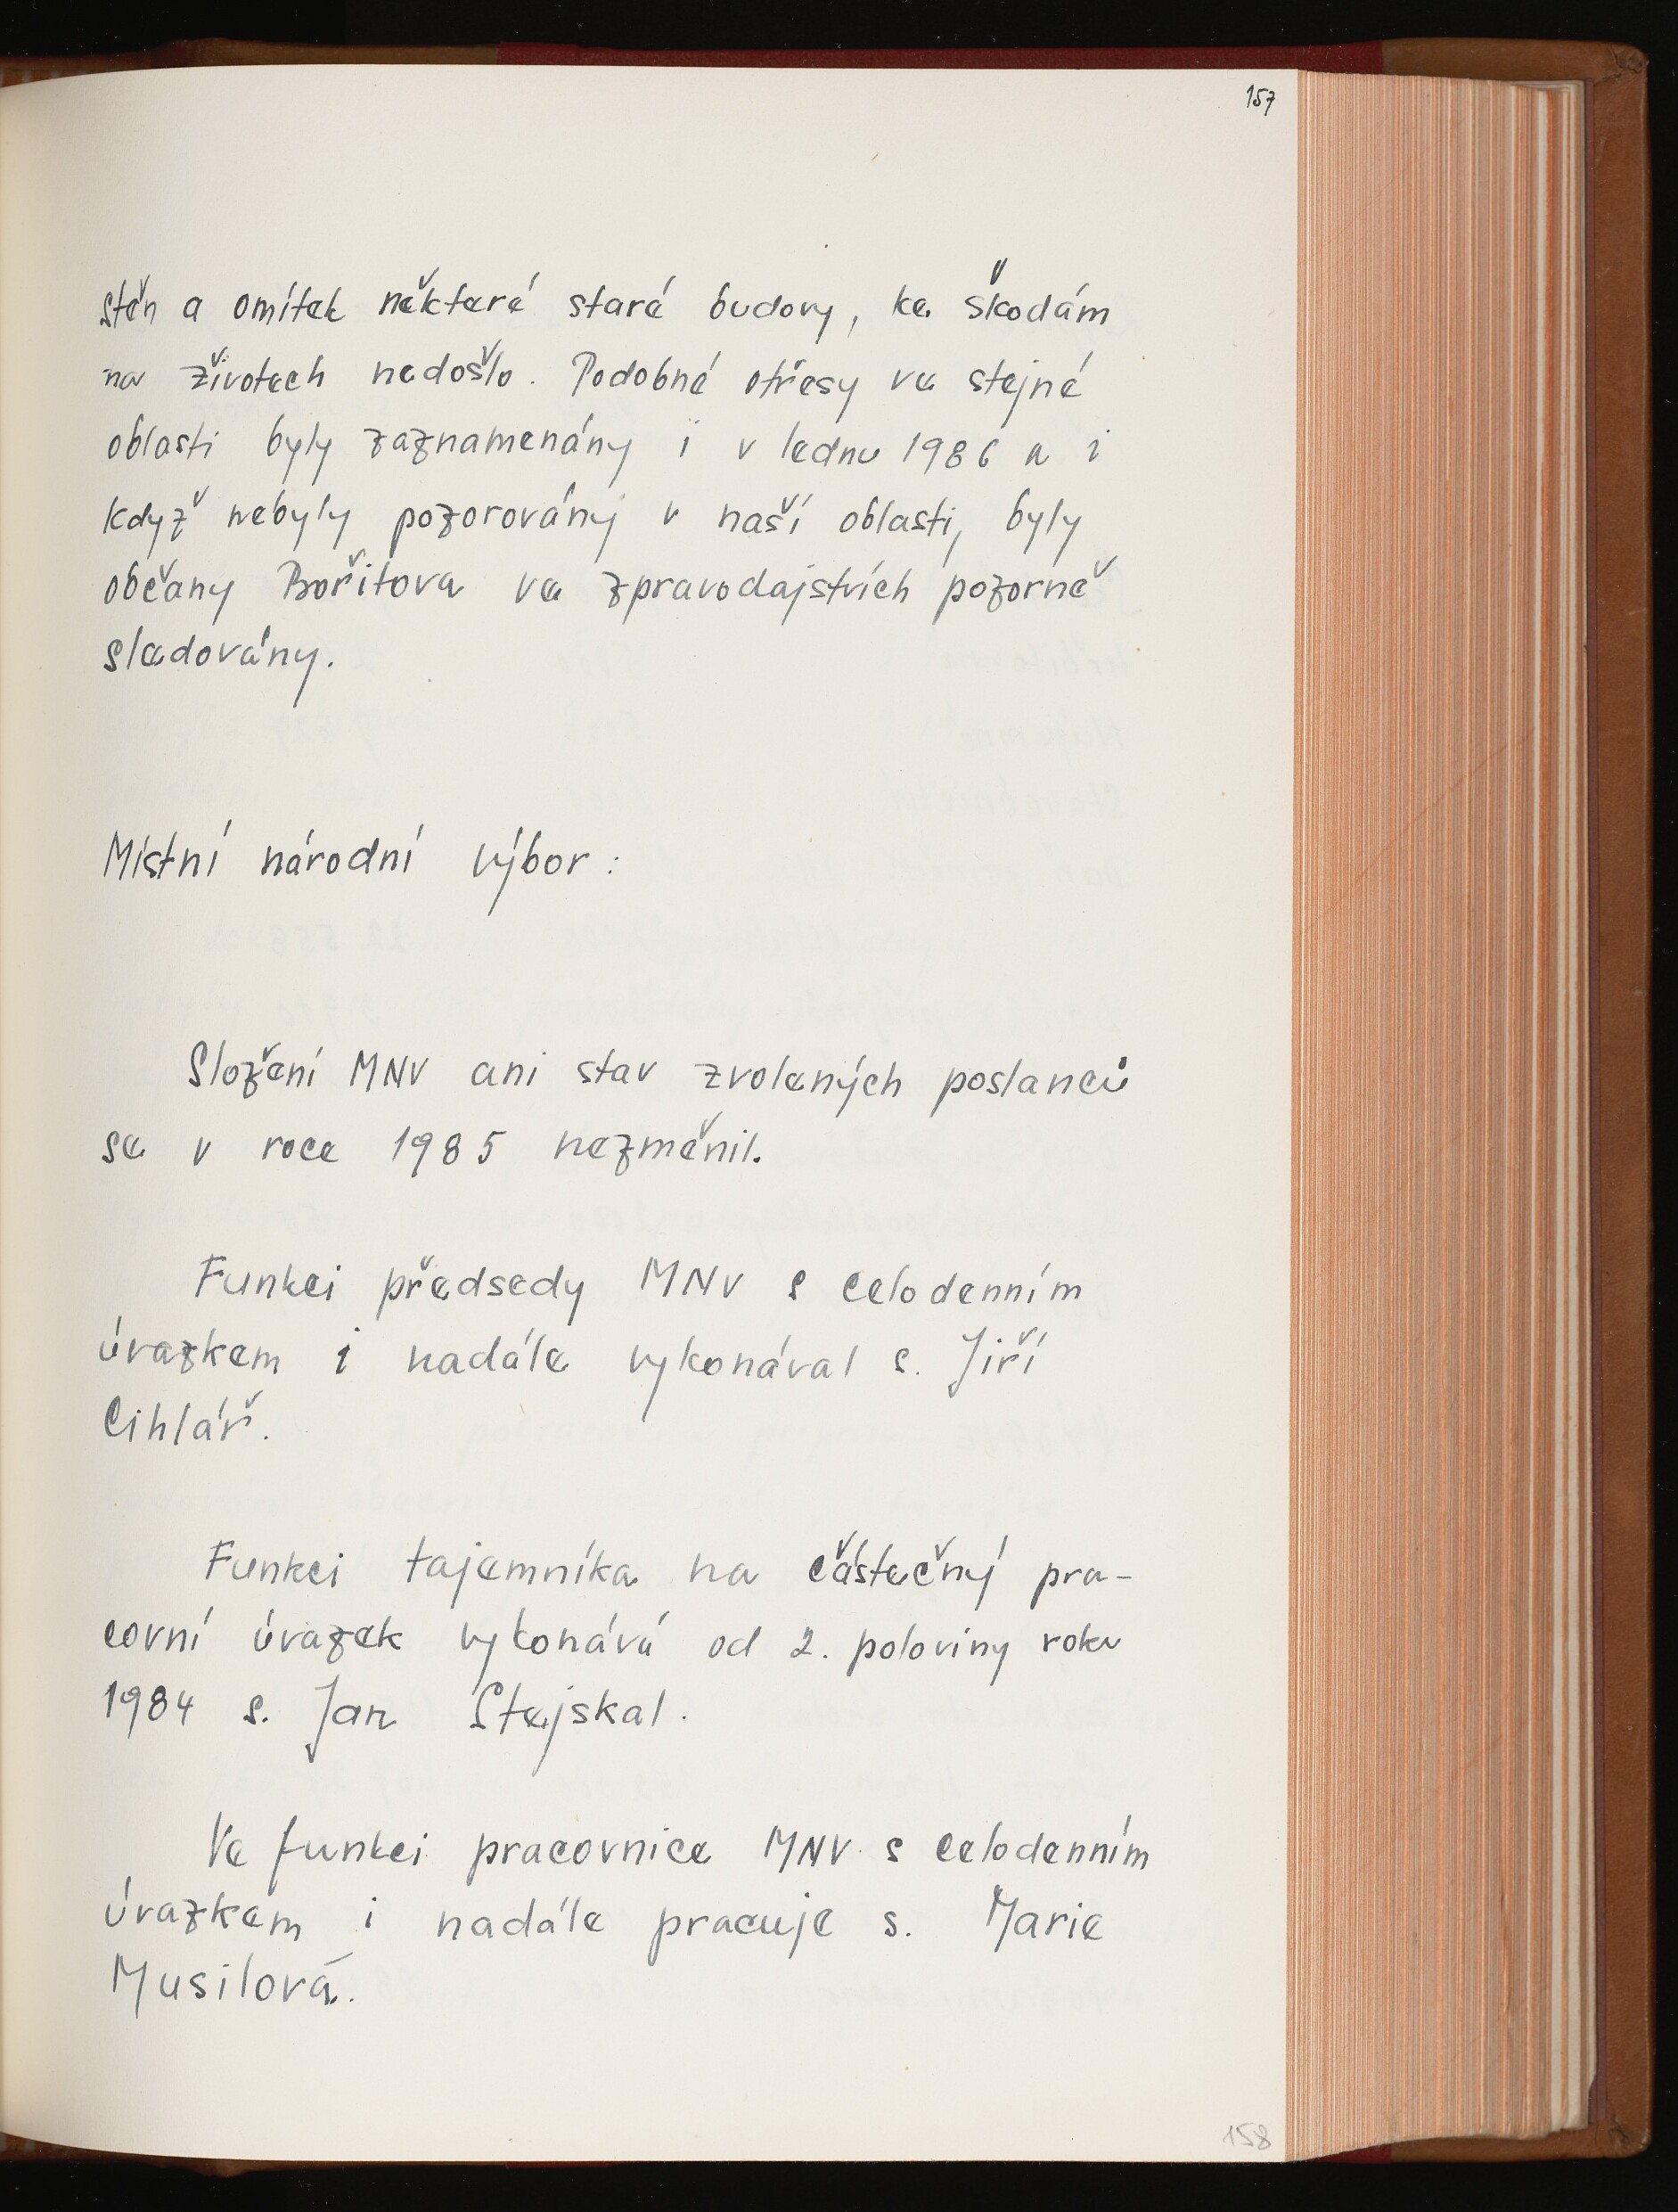 157
stěn a omítek některé staré budovy, ke škodám
na životech nedošlo. Podobné otřesy ve stejné
oblasti byly zaznamenány i v lednu 1986 a i
když nebyly pozorovány v naší oblasti, byly
občany Bořitova ve zpravodajstvích pozorně
sledovány.
Místní národní výbor:
Složení MNV ani stav zvolených poslanců
se v roce 1985 nezměnil.
Funkci předsedy MNV s celodenním
úvazkem i nadále vykonával s. Jiří
Cihlář.
Funkci tajemníka na částečný pra-
covní úvazek vykonává od 2. poloviny roku
1984 s. Jan Stejskal.
Ve funkci pracovnice MNV s celodenním
úvazkem i nadále pracuje s. Marie
Musilová.
158